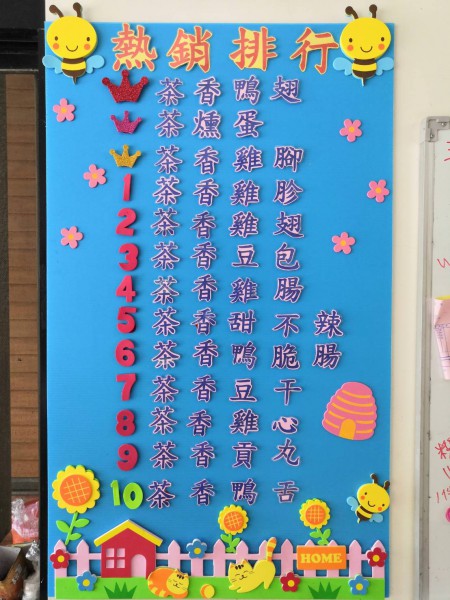 熱銷排行
茶香鴨翅
茶燻蛋
茶香雞腳
1 茶香雞胗
2 茶香雞翅
3 茶香豆包
4 茶香雞腸
5 茶香甜不辣
6 茶香鴨脆腸
7 茶香豆干
8 茶香雞心
9 茶香貢丸
10 茶香鴨舌
HOME